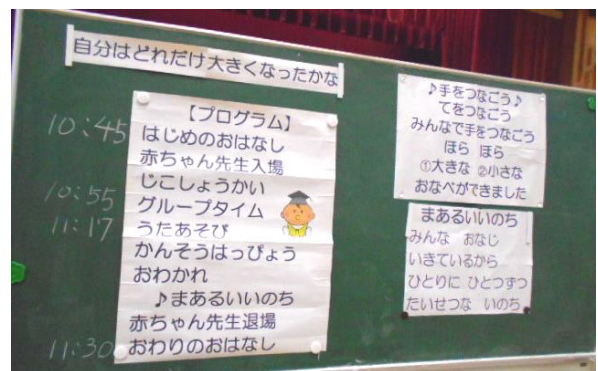 自分はどれだけ大きくなったかな
【プログラム】
10:45
はじめのおはなし
赤ちゃん先生入場
10:55
じこしょうかい
グループタイム
11:17
うたあそび
かんそうはっぴょう
おわかれ
♪まあるいいのち
赤ちゃん先生退場
11:30
おわりのおはなし
♪手をつなごう♪
てをつなごう
みんなで手をつなごう
ほら ほら
①大きな ②小さな
おなべができました
まあるいいのち
みんな おなじ
いきているから
ひとりに ひとつずつ
たいせつな いのち